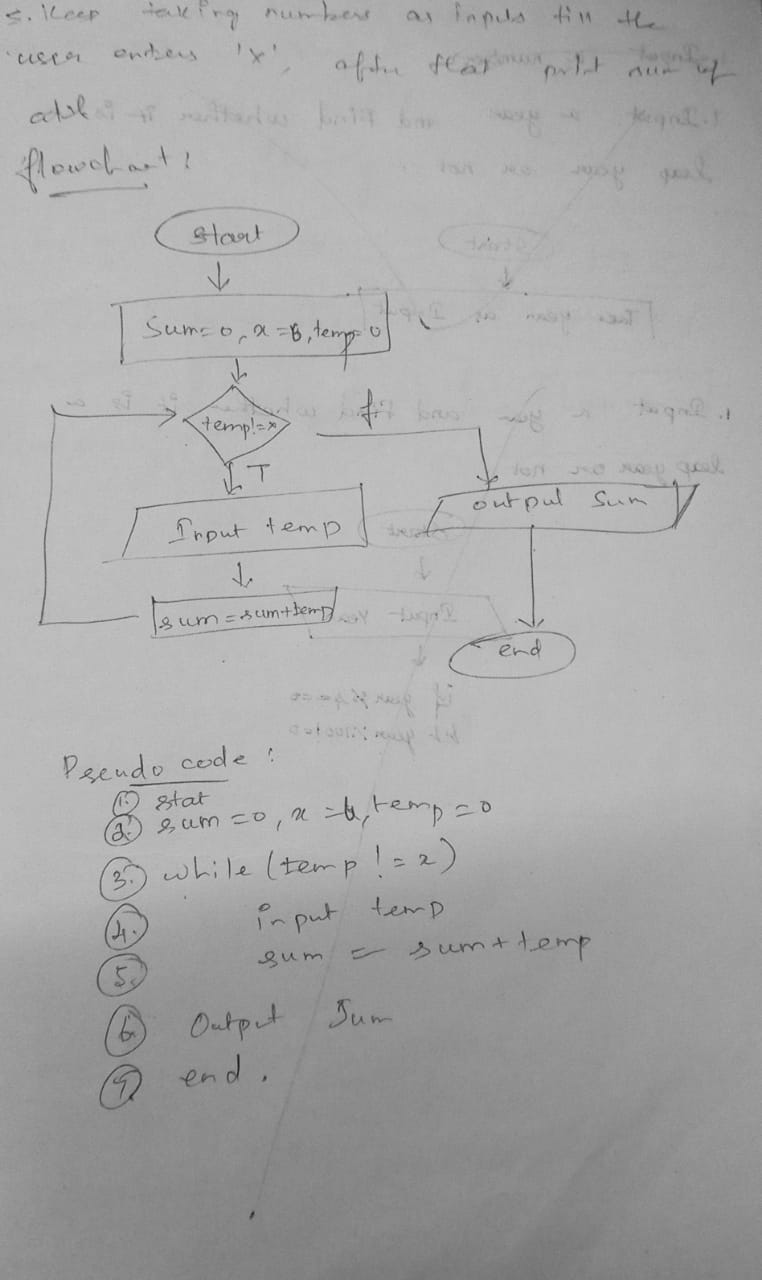 5. Keep taking numbers as inputs till the
user enters 'x', after that print sum of
all
flowchart:
start
Sum=0, x=6, temp=0
temp!=x
f
T
Input temp
output sum
sum=sum+temp
end
Pseudo code:
1. stat
2. sum=0, x=6, temp=0
3. while (temp != x)
4. input temp
5. sum = sum+temp
6. Output Sum
7. end.